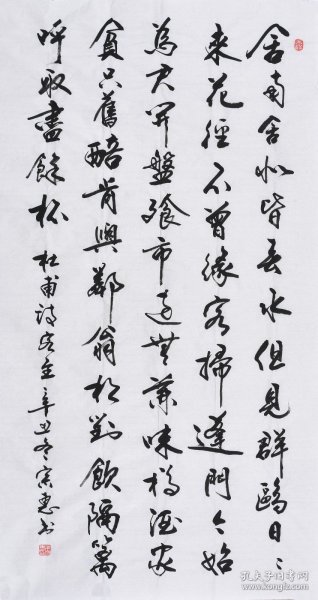 舍南舍北皆春水但見群鷗日〻
來花徑不曾緣客掃蓬門今始
為君開盤飧市遠無兼味樽酒家
貧只舊醅肯與鄰翁相對飲隔籬
呼取盡餘杯 杜甫詩客至 辛丑冬 惠书
孔夫子旧书网